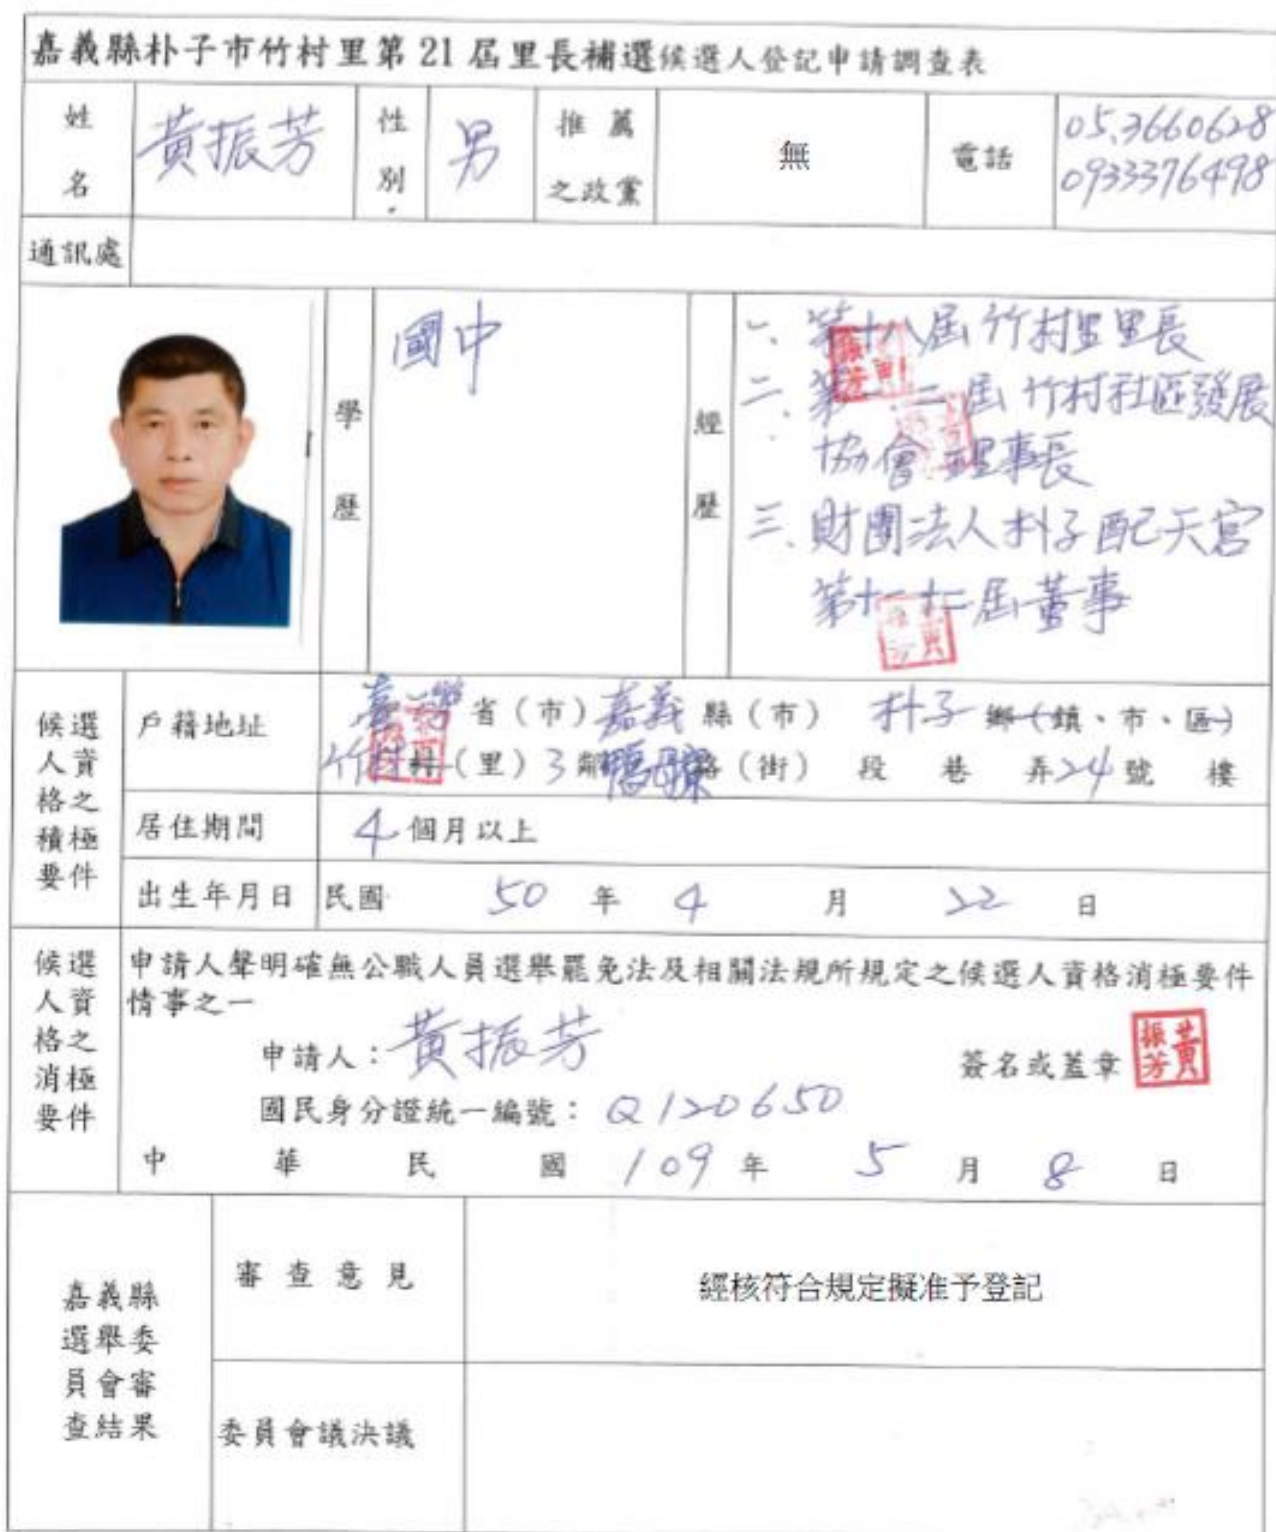 嘉義縣朴子市竹村里第 21 屆里長補選候選人登記申請調查表
姓名 黃振芳 性別 男 推薦之政黨 無 電話 05.3660628
0933376498
通訊處
學歷 國中
經歷
一、第十八屆竹村里里長
二、第一、二屆竹村社區發展
協會理事長
三、財團法人朴子配天宮
第十一十二屆董事
候選人資格之積極要件
戶籍地址 臺灣省（市）嘉義縣（市）朴子鄉（鎮、市、區）
竹村村（里）3鄰 路（街） 段 巷 弄24號 樓
居住期間 4個月以上
出生年月日 民國 50 年 4 月 22 日
候選人資格之消極要件
申請人聲明確無公職人員選舉罷免法及相關法規所規定之候選人資格消極要件
情事之一
申請人：黃振芳 簽名或蓋章 黃振芳
國民身分證統一編號：Q120650
中華民國 109 年 5 月 8 日
嘉義縣選舉委員會審查結果
審查意見 經核符合規定擬准予登記
委員會議決議